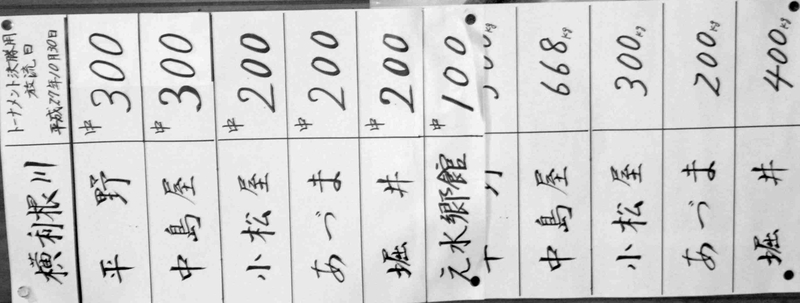 横利根川 トーナメント決勝用
放流日
平成27年10月30日
平野 中300
中島屋 中300
小松屋 中200
あづま 中200
堀井 中200
元水郷館 中100
中島屋 668kg
小松屋 300kg
あづま 200kg
堀井 400kg